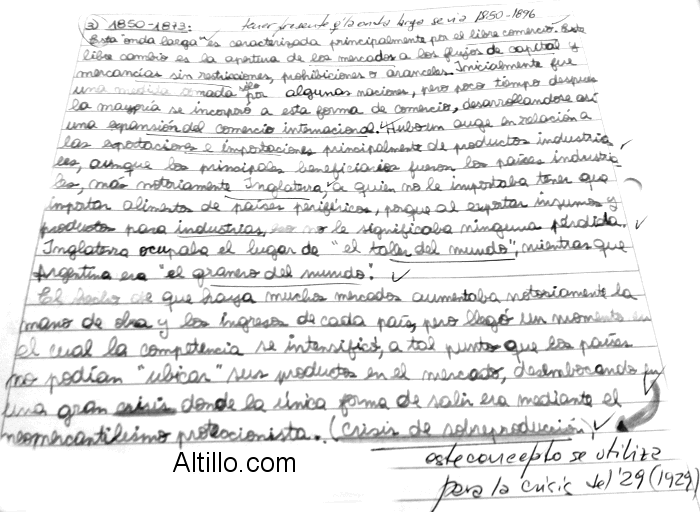 ③ 1850-1873: tener presente q' la onda larga se va 1850-1896
Esta "onda larga" es caracterizada principalmente por el libre comercio. Este
libre cambio es la apertura de los mercados a los flujos de capital y
mercancías sin restricciones, prohibiciones o aranceles. Inicialmente fue
una medida tomada sólo por algunas naciones, pero poco tiempo después
la mayoría se incorporó a esta forma de comercio, desarrollandose así
una expansión del comercio internacional. Hubo un auge en relación a
las exportaciones e importaciones principalmente de productos industria
les, aunque los principales beneficiarios fueron los países industria
les, más notoriamente Inglaterra, a quien no le importaba tener que
importar alimentos de países periféricos, porque al exportar insumos y
productos para industrias, eso no le significaba ninguna pérdida.
Inglaterra ocupaba el lugar de "el taller del mundo", mientras que
Argentina era "el granero del mundo".
El hecho de que haya muchos mercados aumentaba notoriamente la
mano de obra y los ingresos de cada país, pero llegó un momento en
el cual la competencia se intensificó, a tal punto que los países
no podían "ubicar" sus productos en el mercado, desembocando en
una gran crisis donde la única forma de salir era mediante el
neomercantilismo proteccionista. (crisis de sobreproducción)
este concepto se utiliza
para la crisis del '29 (1929)
Altillo.com